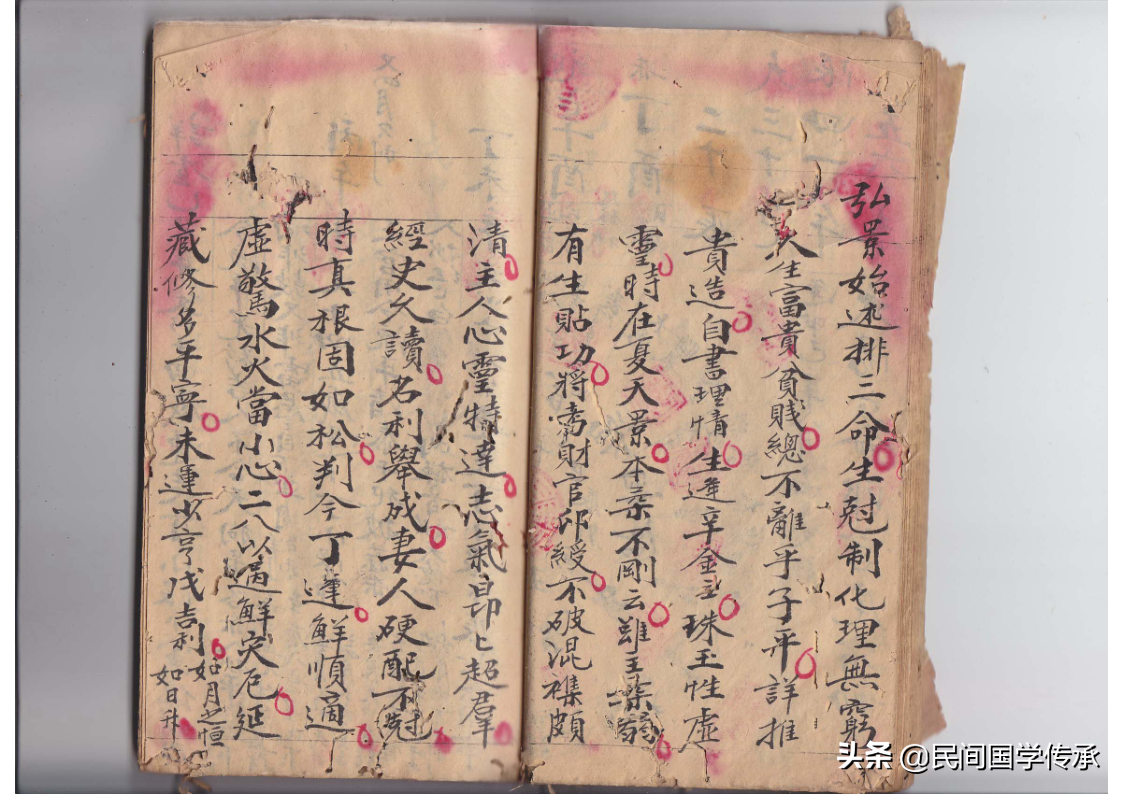 弘景始述排三命生尅制化理無窮
人生富貴貧賤總不離乎子平詳推
貴造自書理情生逢辛金主珠玉性虛
靈時在夏天景本柔不剛云雖主柔弱
有生貼功將旁財官印綬不破混襍頗
清主人心靈特達志氣昂匕超羣
經史久讀名利舉成妻人硬配不尅
時真根固如松判今丁運鮮順適
虛驚水火當小心二八以過鮮灾厄延
藏修名平寧未運少亨戊吉利
如月之恒
如日升
头条 @民间国学传承